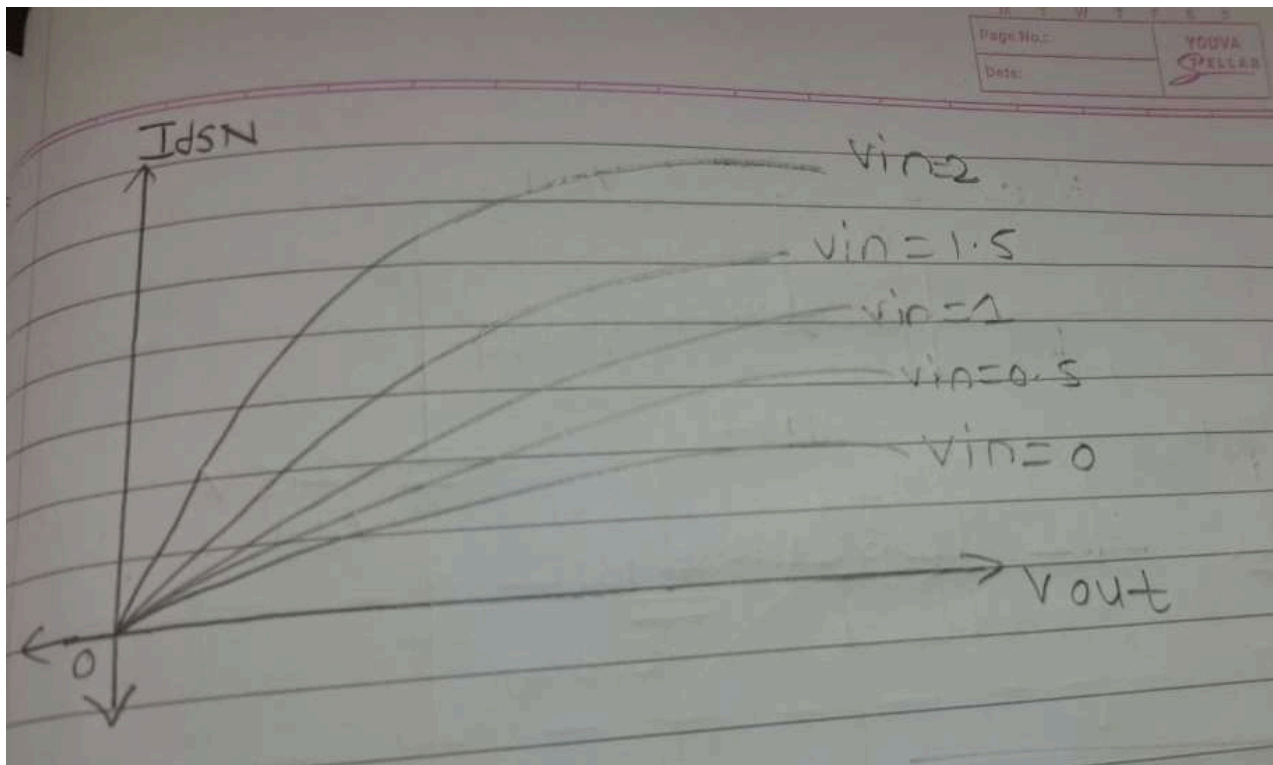 M T W T F S S
Page No.:
Date:
YOUVA
IdSN
Vin=2
Vin=1.5
Vin=1
Vin=0.5
Vin=0
Vout
0